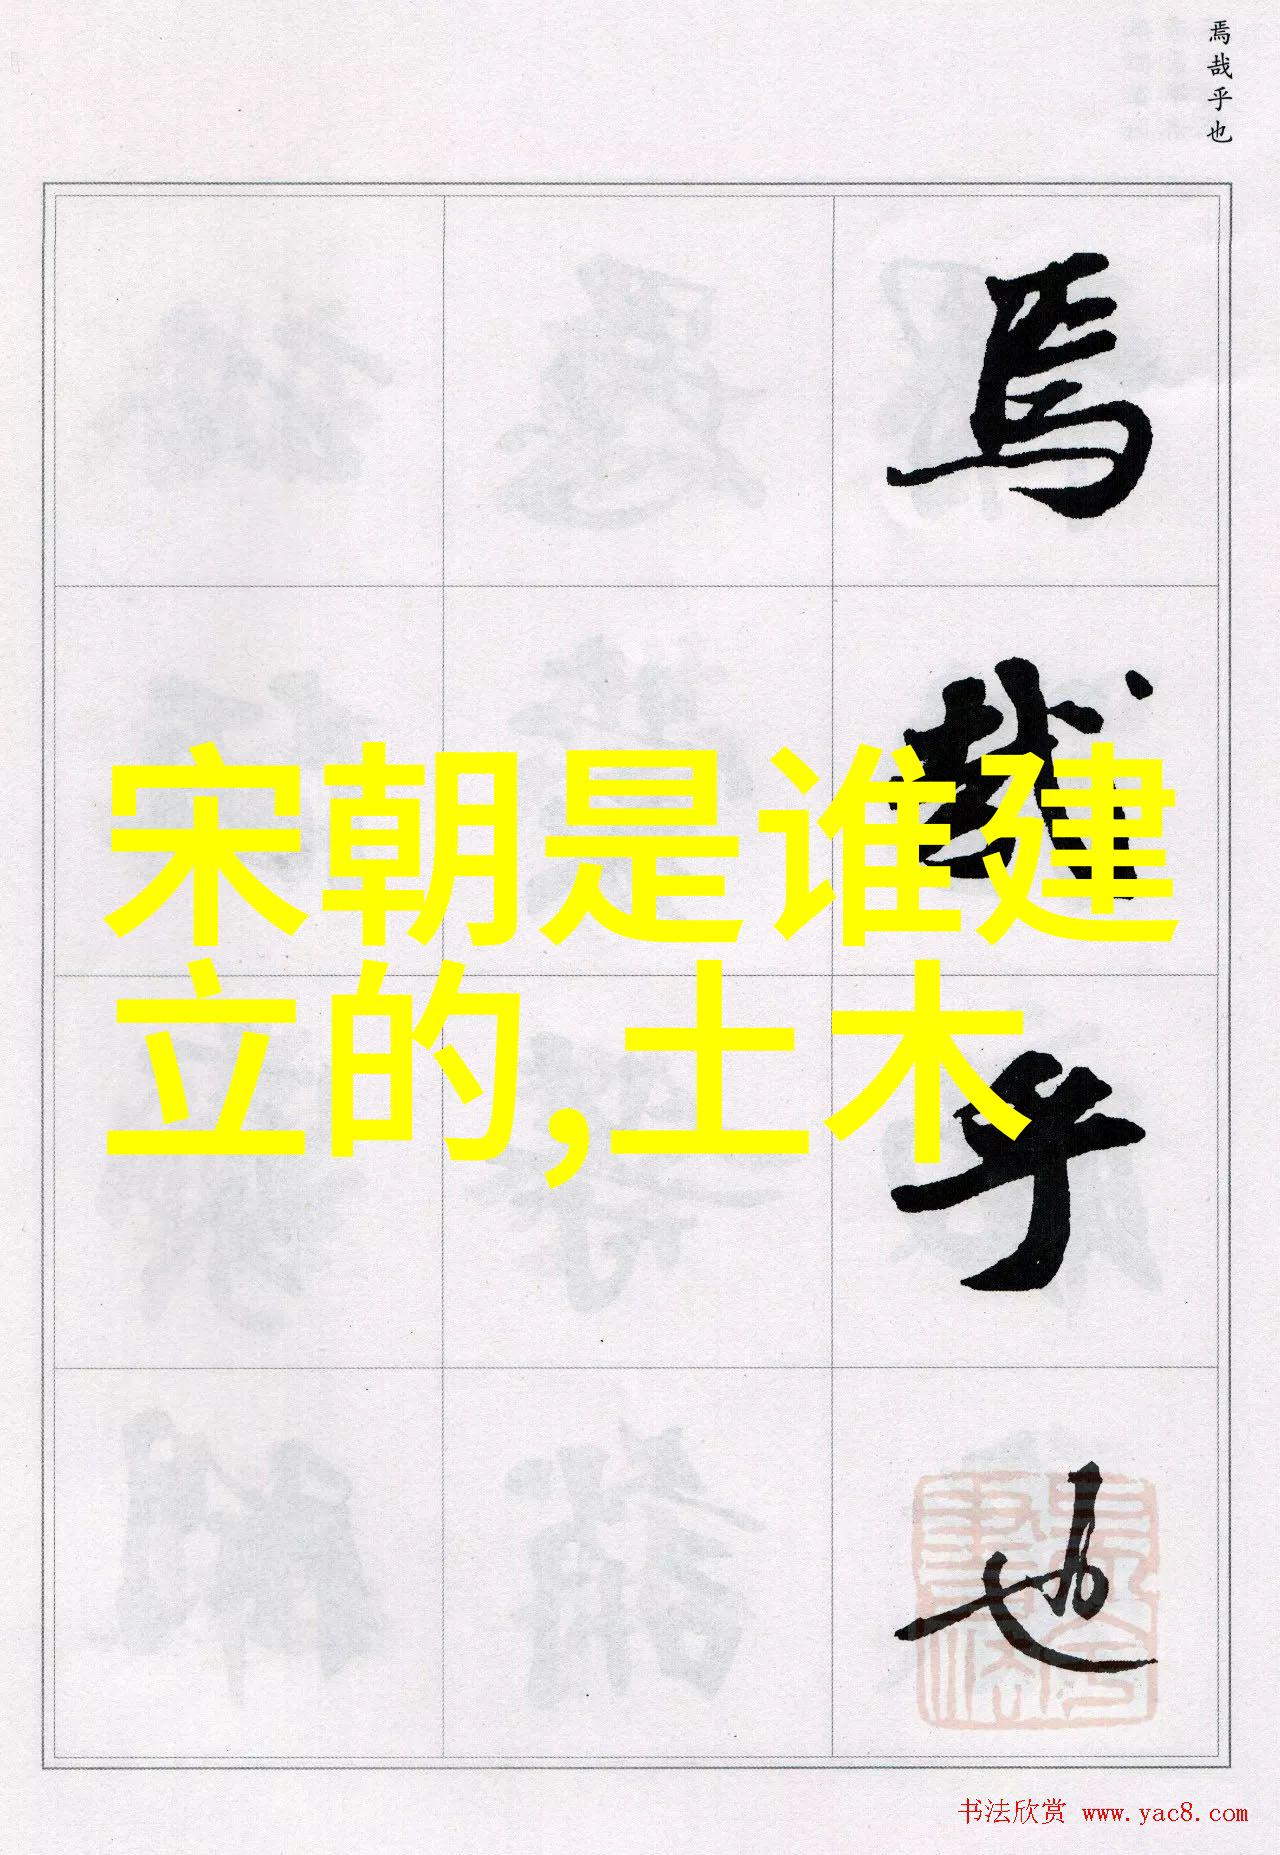 焉哉乎也
焉
哉
乎
也
宋朝是谁建
立的,土木
书法欣赏 www.yac8.com